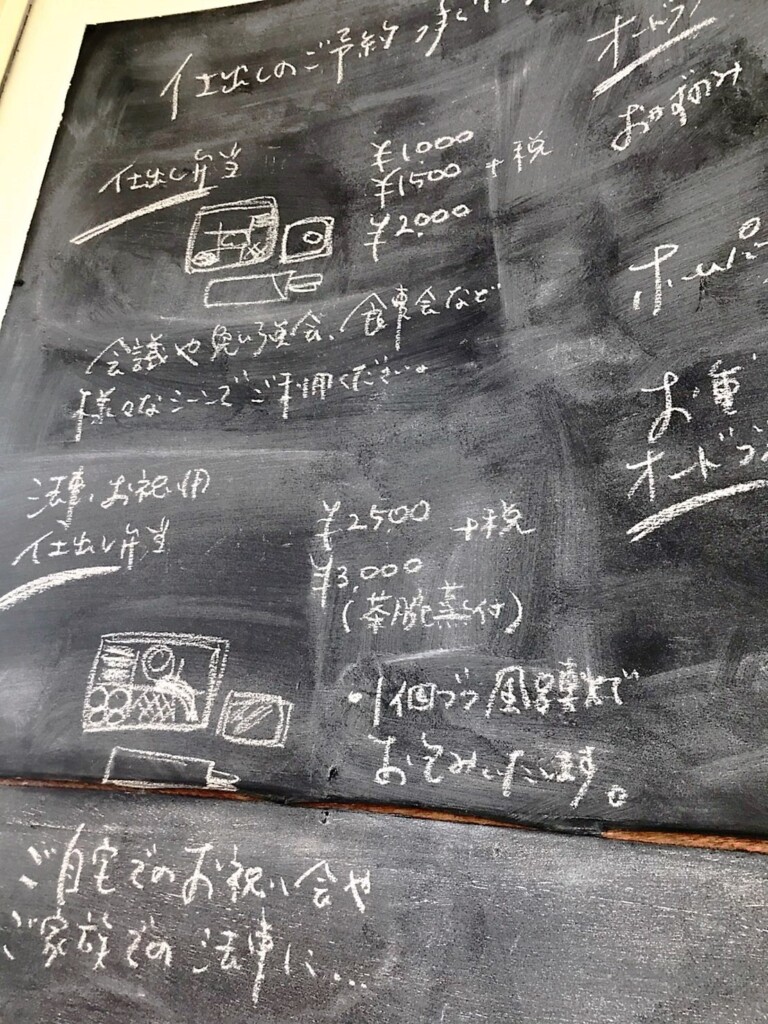 仕出しのご予約 承ぐ
仕出し弁当
¥1000
¥1500 +税
¥2000
会議や勉強会、食事会など
様々なシーンでご利用ください。
法事、お祝い用
仕出し弁当
¥2500 +税
¥3,000
(茶腕蒸し付)
・1個づつ風呂敷で
お包みいたします。
ご自宅でのお祝い会や
ご家族での法事に...
オードブ
おつまみ
ホームパ
お重
オードブ